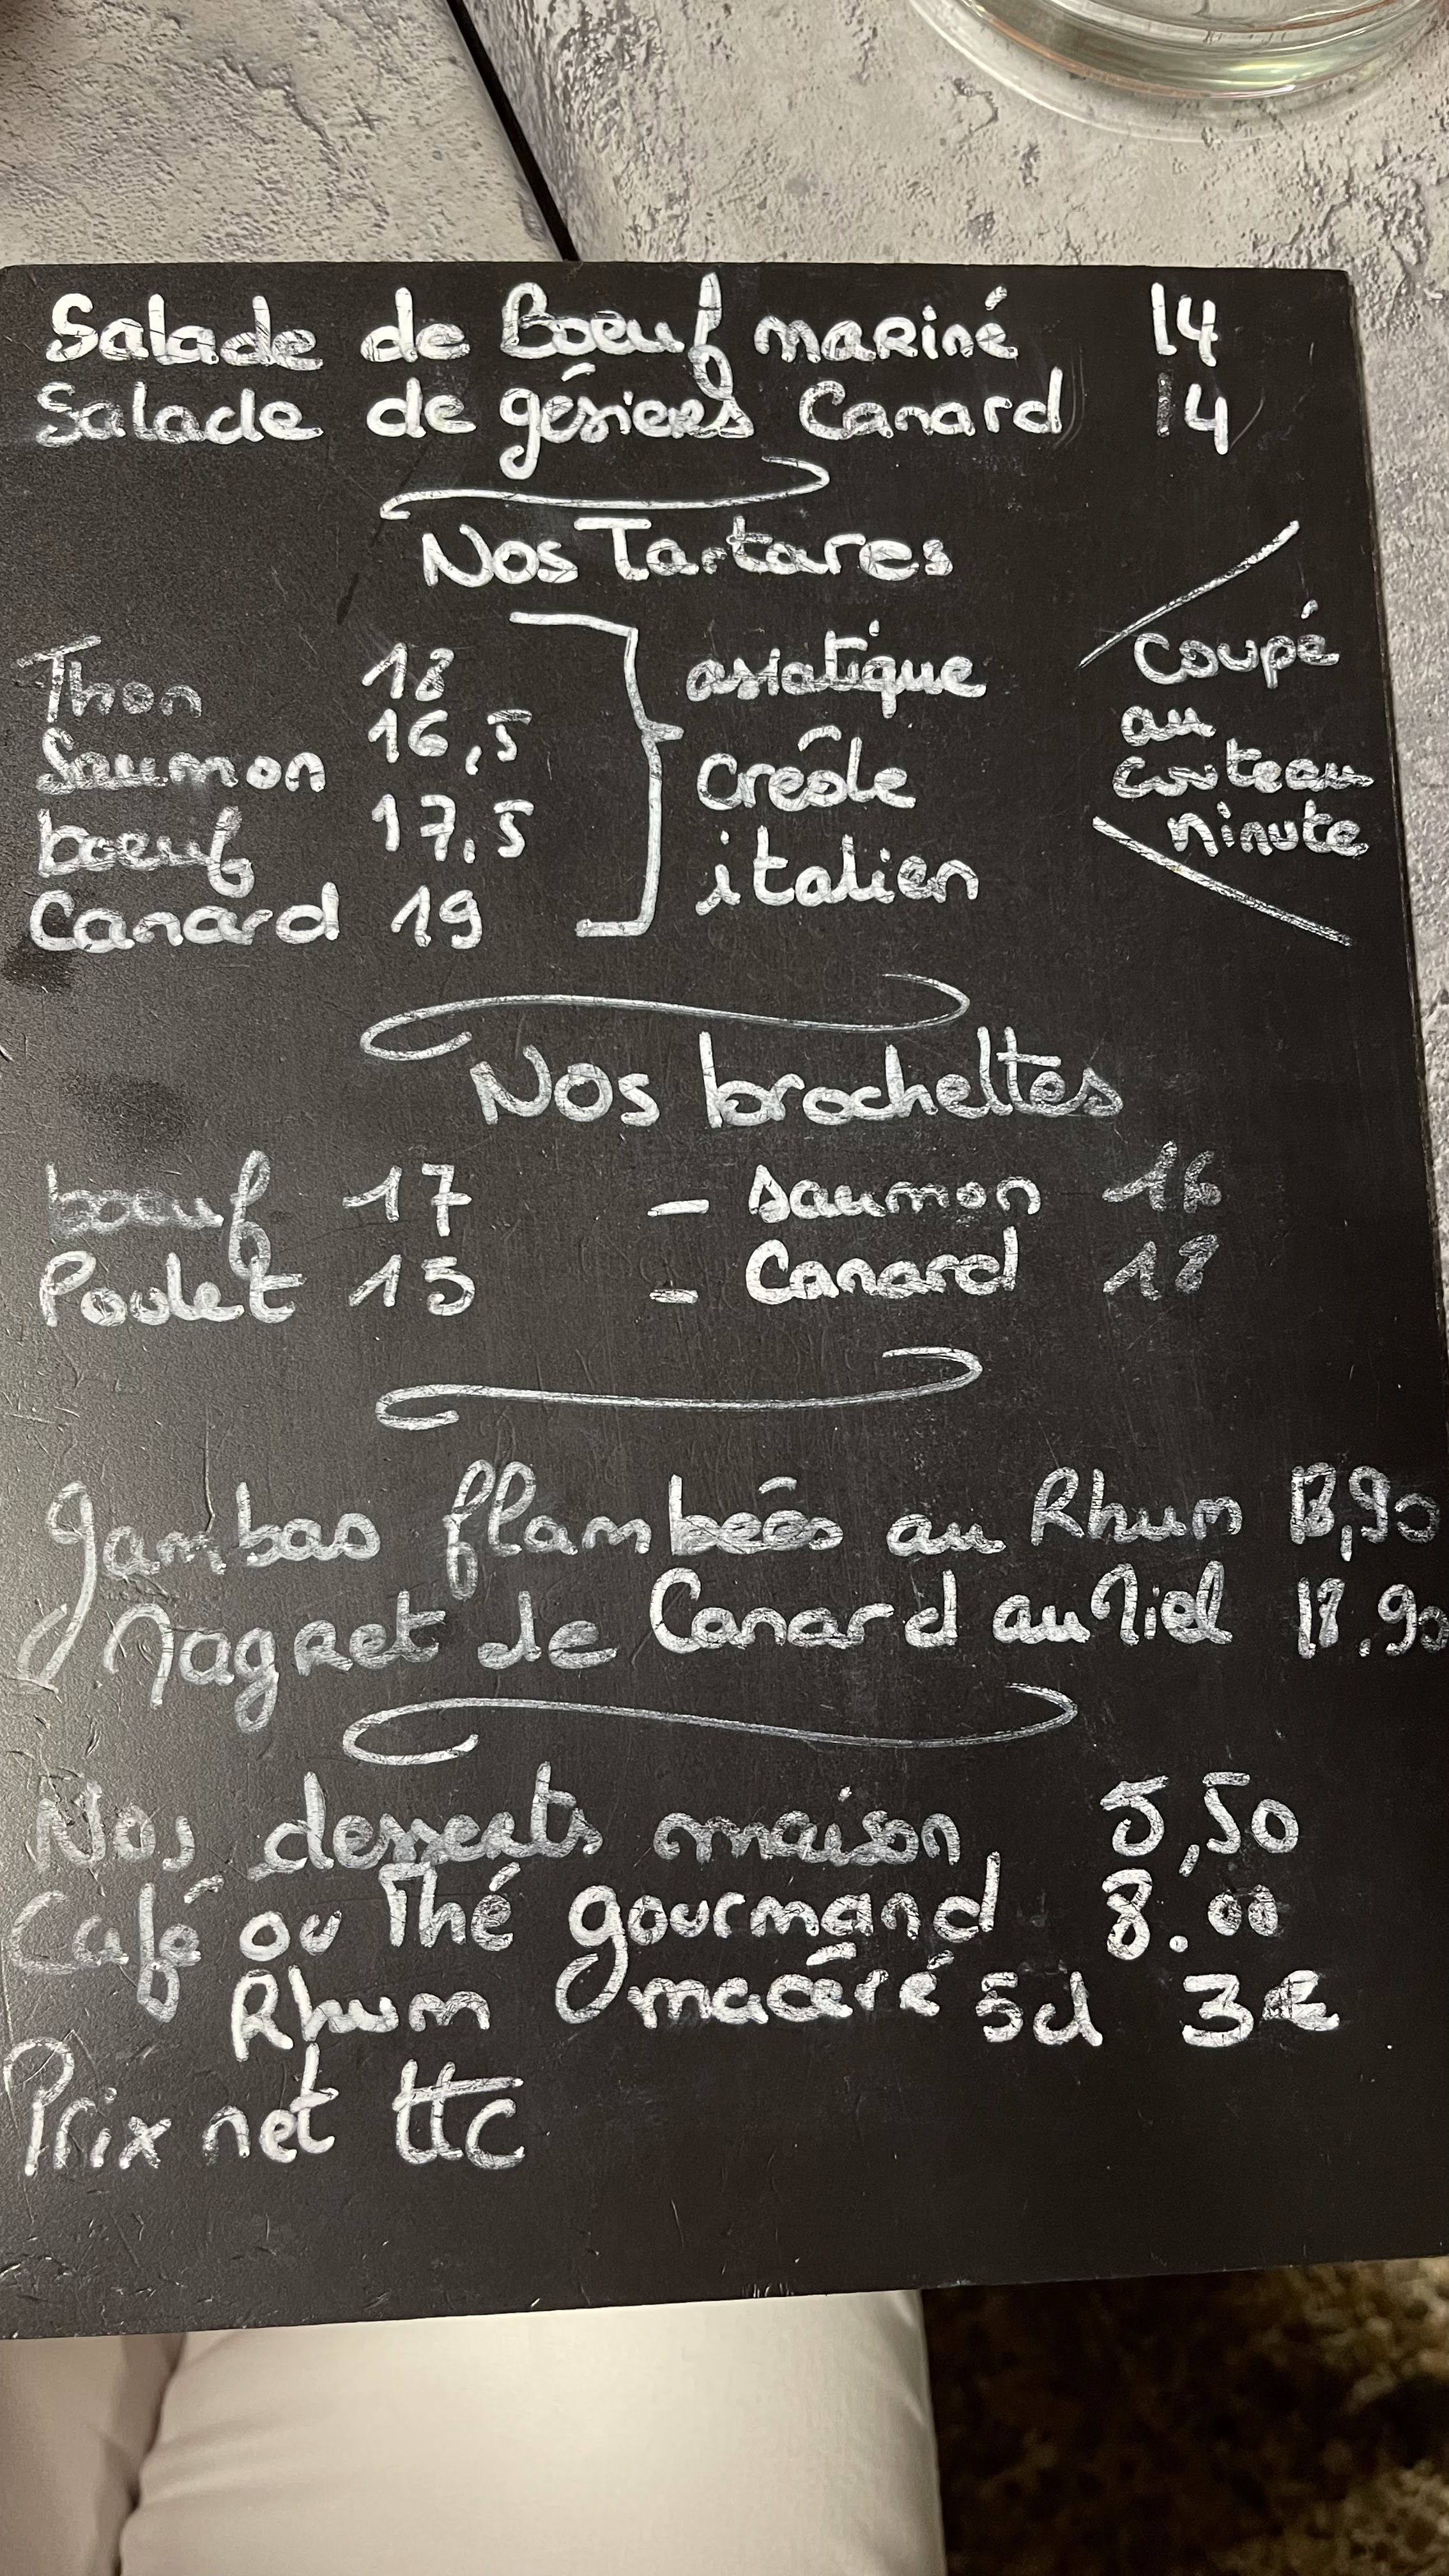 Salade de Boeuf mariné 14
Salade de gésiers Canard 14
Nos Tartares
Thon 18
Saumon 16,5
boeuf 17,5
Canard 19
asiatique
créole
italien
coupé
au
couteau
minute
Nos brochettes
boeuf 17 - saumon 16
Poulet 15 - Canard 18
gambas flambées au Rhum 18,90
Magret de Canard au Miel 18.90
Nos desserts maison 5,50
Café ou Thé gourmand 8.00
Rhum macéré 5cl 3€
Prix net ttc